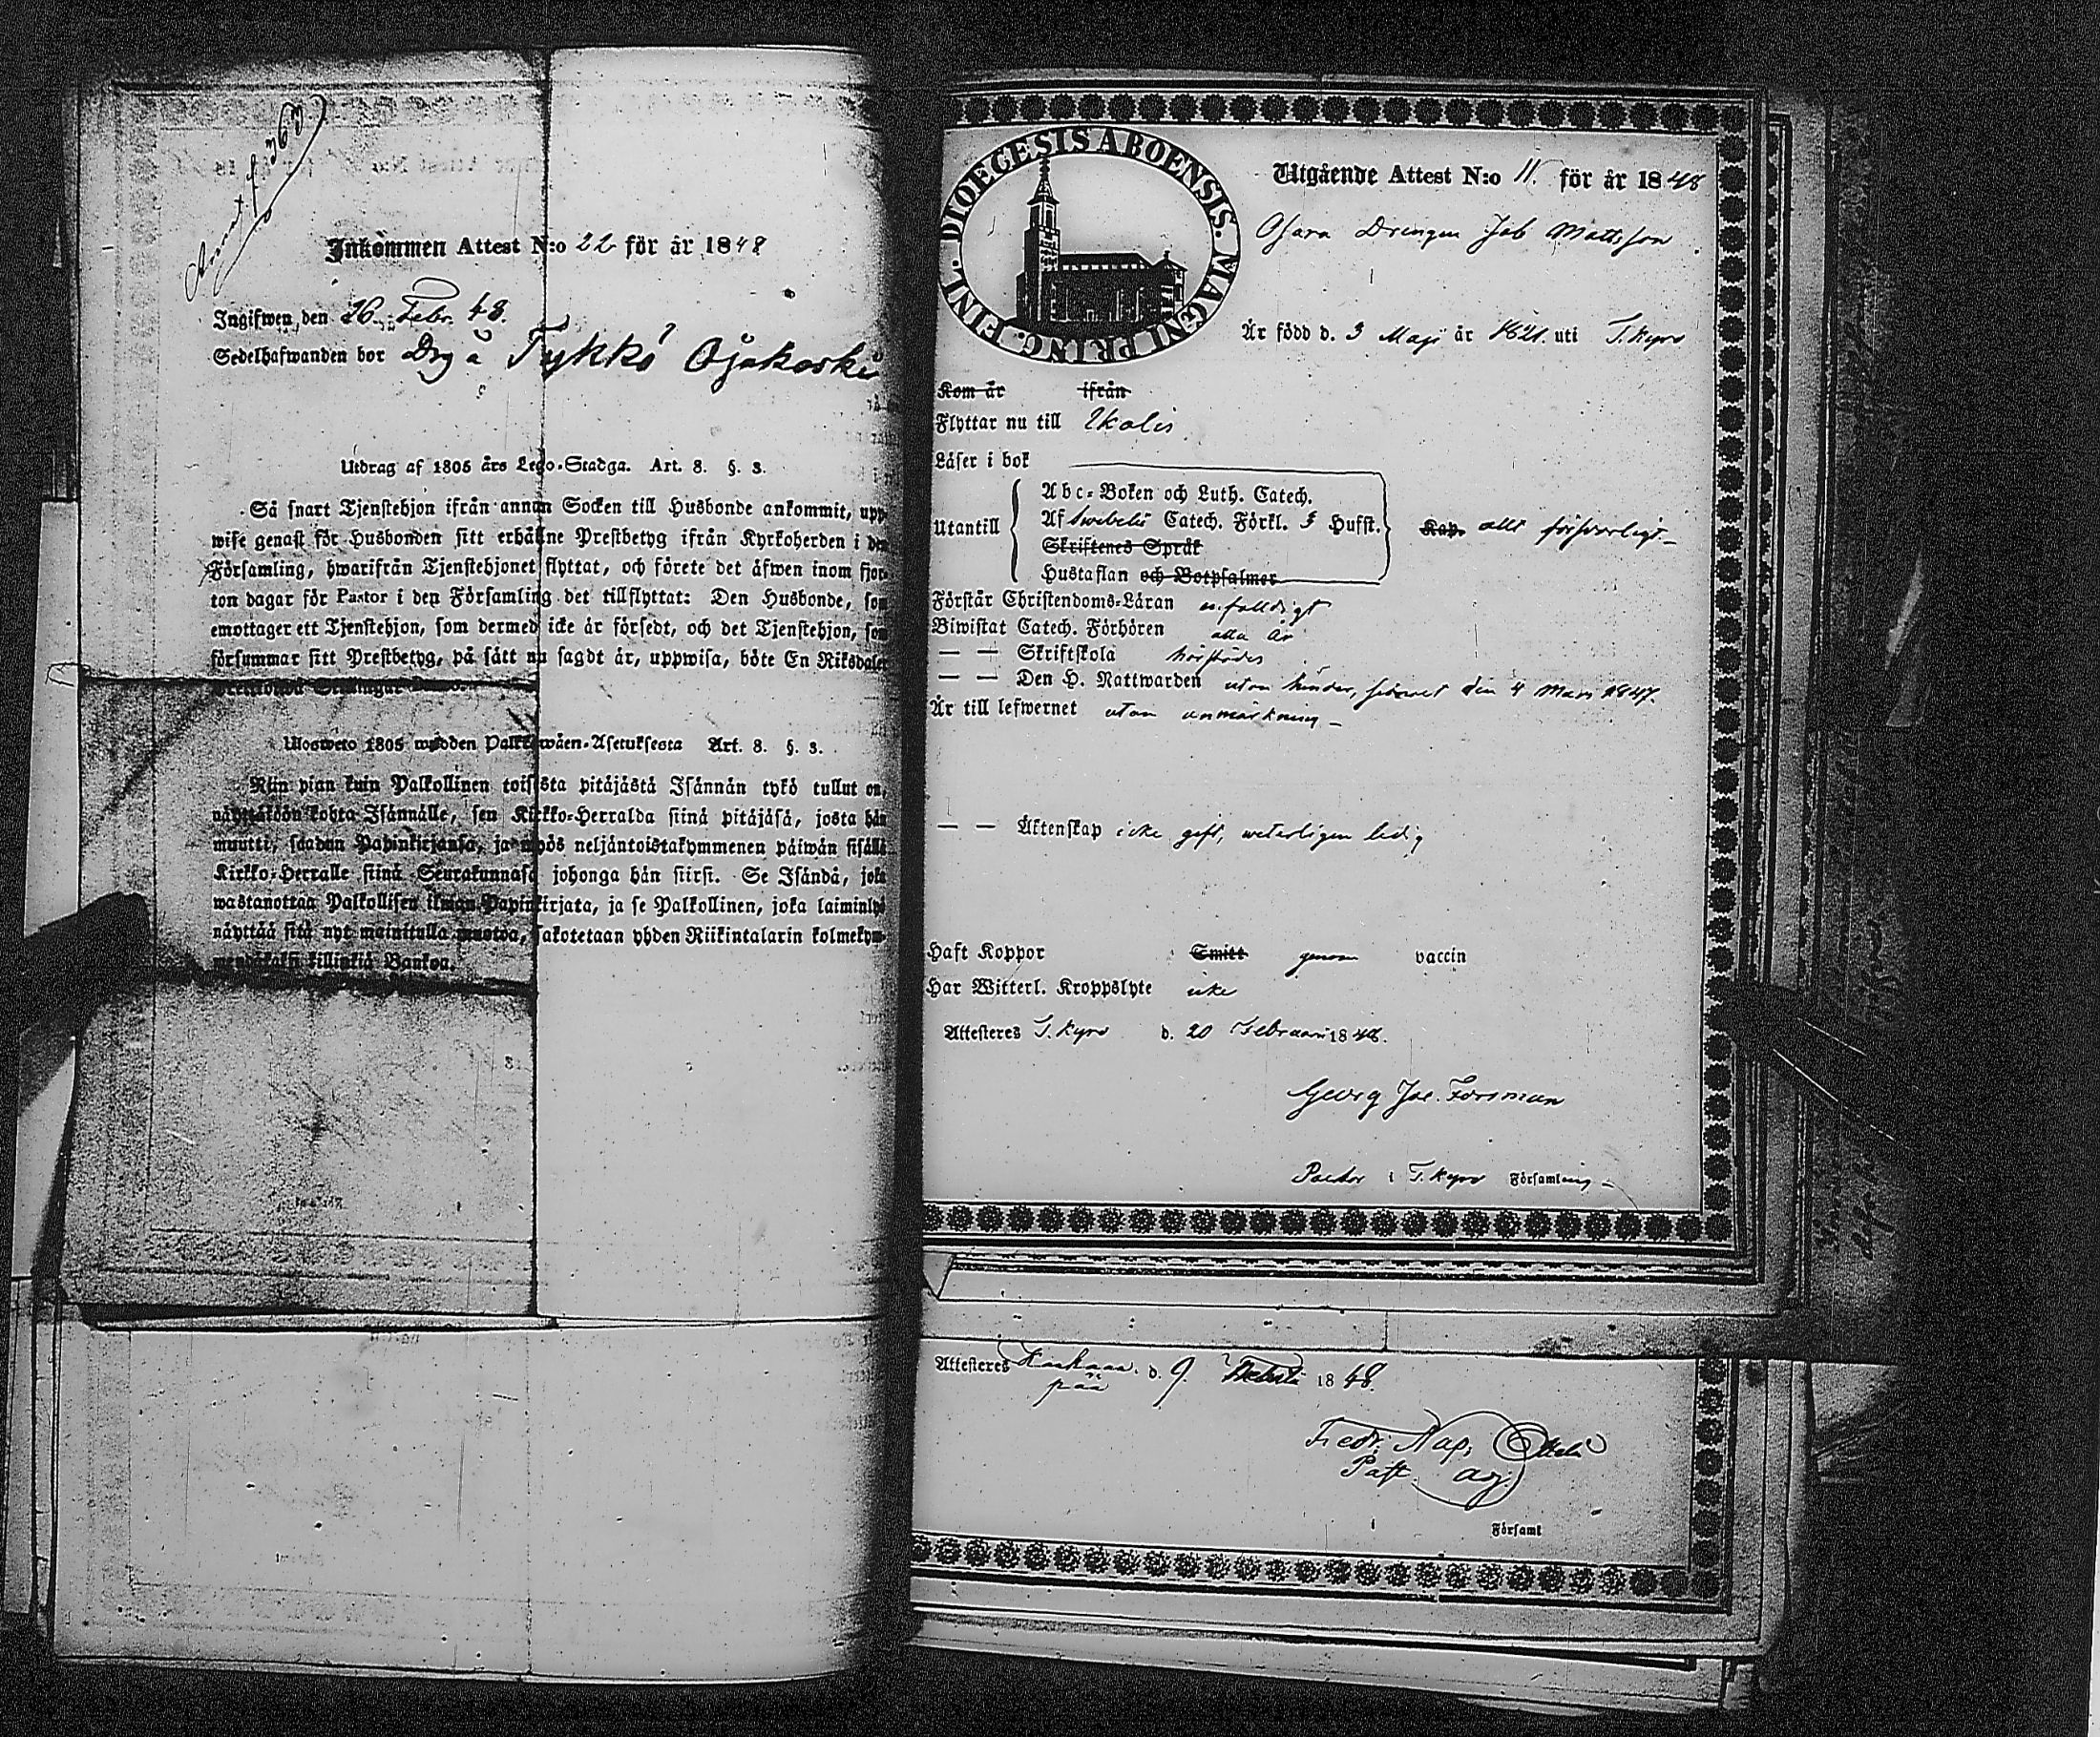 Annot. f. 363
Inkommen Attest N:o 22 för år 1848
Ingifwen den 26. Febr. 48.
Sedelhafwanden bor Dr̄g å Tykkö Ojakoski
Utdrag af 1805 års Lego-Stadga. Art. 8. §. 3.
Så snart Tjenstehjon ifrån annan Socken till Husbonde ankommit, upp-
wise genast för Husbonden sitt erhållne Prestbetyg ifrån Kyrkoherden i den
Församling, hwarifrån Tjenstehjonet flyttat, och förete det äfwen inom fjor-
ton dagar för Pastor i den Församling det tillflyttat: Den Husbonde, som
emottager ett Tjenstehjon, som dermed icke är försedt, och det Tjenstehjon, som
försummar sitt Prestbetyg, på sätt nu sagdt är, uppwisa, böte En Riksdaler
Ulosweto 1805 wuoden Palkkawäen-Asetuksesta Art. 8. §. 3.
Niin pian kuin Palkollinen toisesta pitäjästä Isännän tykö tullut on,
näyttäköön kohta Isännälle, sen Kirkko-Herralda siinä pitäjäsä, josta hän
muutti, saadun Papinkirjansa, ja myös neljäntoistakymmenen päiwän sisällä
Kirkko-Herralle siinä Seurakunnasa johonga hän siirsi. Se Isändä, joka
wastanottaa Palkollisen ilman Papinkirjata, ja se Palkollinen, joka laiminlyö
näyttää sitä nyt mainitulla muotoa, sakotetaan yhden Riikintalarin kolmekym-
mendäkaksi killinkiä Bankoa.
DIOECESIS ABOENSIS. MAGNI PRINC. FINL.
Utgående Attest N:o 11. för år 1848
Osara Drengen Job Mattsson
Är född d. 3 Maji år 1821. uti T. Kyro
Kom år ifrån
Flyttar nu till Ikalis
Läser i bok
Utantill
Abc-Boken och Luth. Catech.
Af Swebelii Catech. Förkl. 3 Hufst.
Skriftenes Språk
Hustaflan och Botpsalmer
Kap. allt försvarligt
Förstår Christendoms-Läran enfaldigt
Biwistat Catech. Förhören alla år
— — Skriftskola
— — Den H. Nattwarden utan hinder, senast den 4 Mars 1847.
Är till lefwernet utan anmärkning —
— — Äktenskap icke gift, weterligen ledig
Haft Koppor Smitt genom vaccin
Har Witterl. Kroppslyte icke
Attesteres T. Kyro d. 20 Februari 1848.
Georg Jac. Forsman
Pastor i T. Kyro Församling —
Attesteres Kankaan- d. 9. 1848.
pää
Fredr. Nap.
Past. adj.
Församl